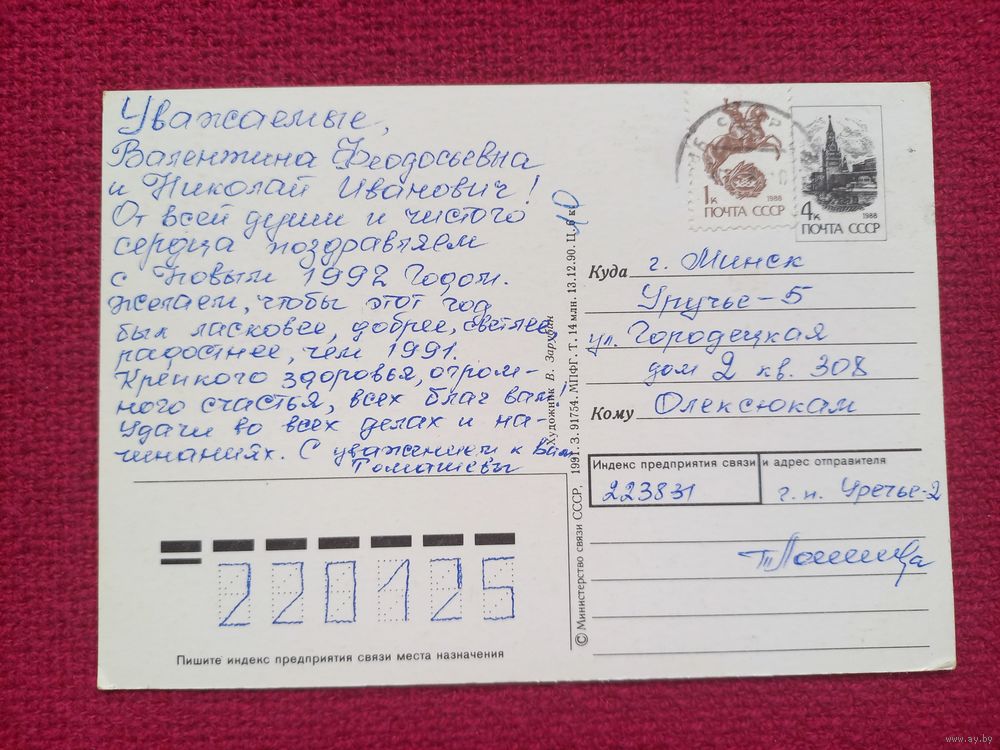 Уважаемые,
Валентина Феодосьевна
и Николай Иванович!
От всей души и чистого
сердца поздравляем
с Новым 1992 Годом.
Желаем, чтобы этот год
был ласковее, добрее, светлее,
радостнее, чем 1991.
Крепкого здоровья, огром-
ного счастья, всех благ вам!
Удачи во всех делах и на-
чинаниях. С уважением к Вам
Томашевы
220125
Пишите индекс предприятия связи места назначения
© Министерство связи СССР, 1991. З. 91754. МПФГ. Т. 14 млн. 13.12.90. Ц. 6 к.
Художник В. Зарубин
10
1к
1988
ПОЧТА СССР
4к
1988
ПОЧТА СССР
Куда г. Минск
Уручье-5
ул. Городецкая
дом 2 кв. 308
Кому Олексюкам
Индекс предприятия связи и адрес отправителя
223831 г. п. Уречье-2
www.ay.by